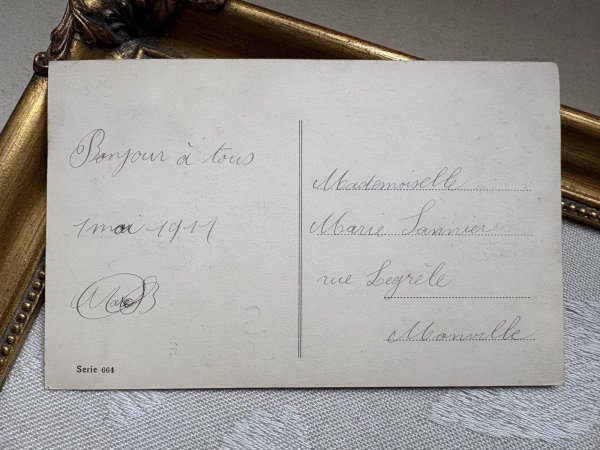 Bonjour à tous
1 mai 1911
Serie 664
Mademoiselle
Marie Lannier
rue Legrèle
Monville